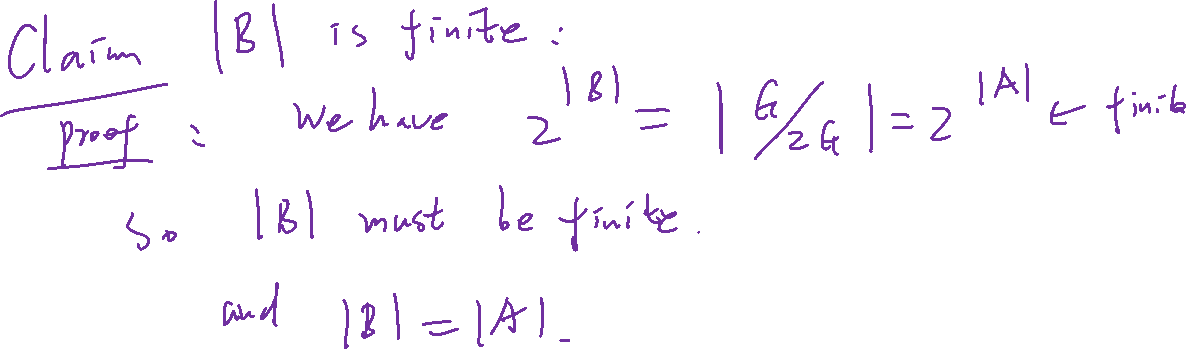 Claim |B| is finite :
Proof : We have 2^{|B|} = |G/2G| = 2^{|A|} ← finite
So |B| must be finite.
and |B| = |A|.